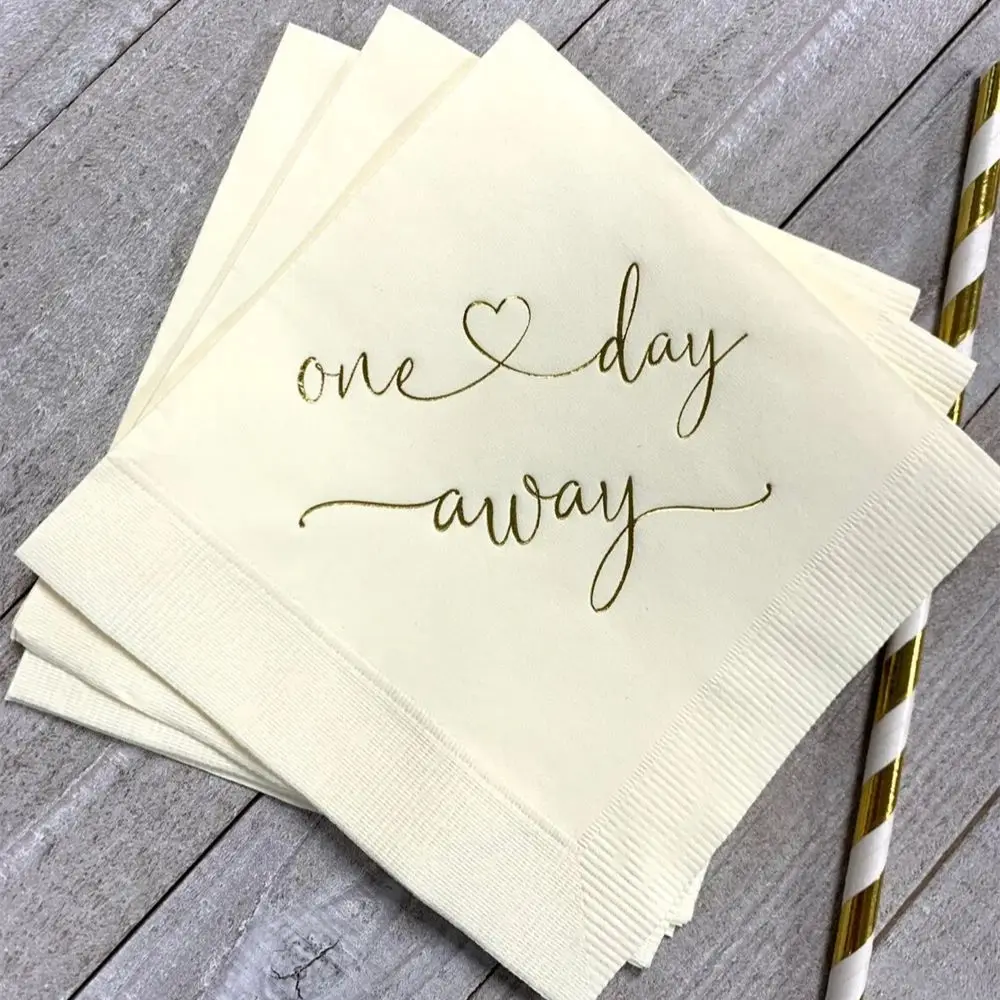 one day
away